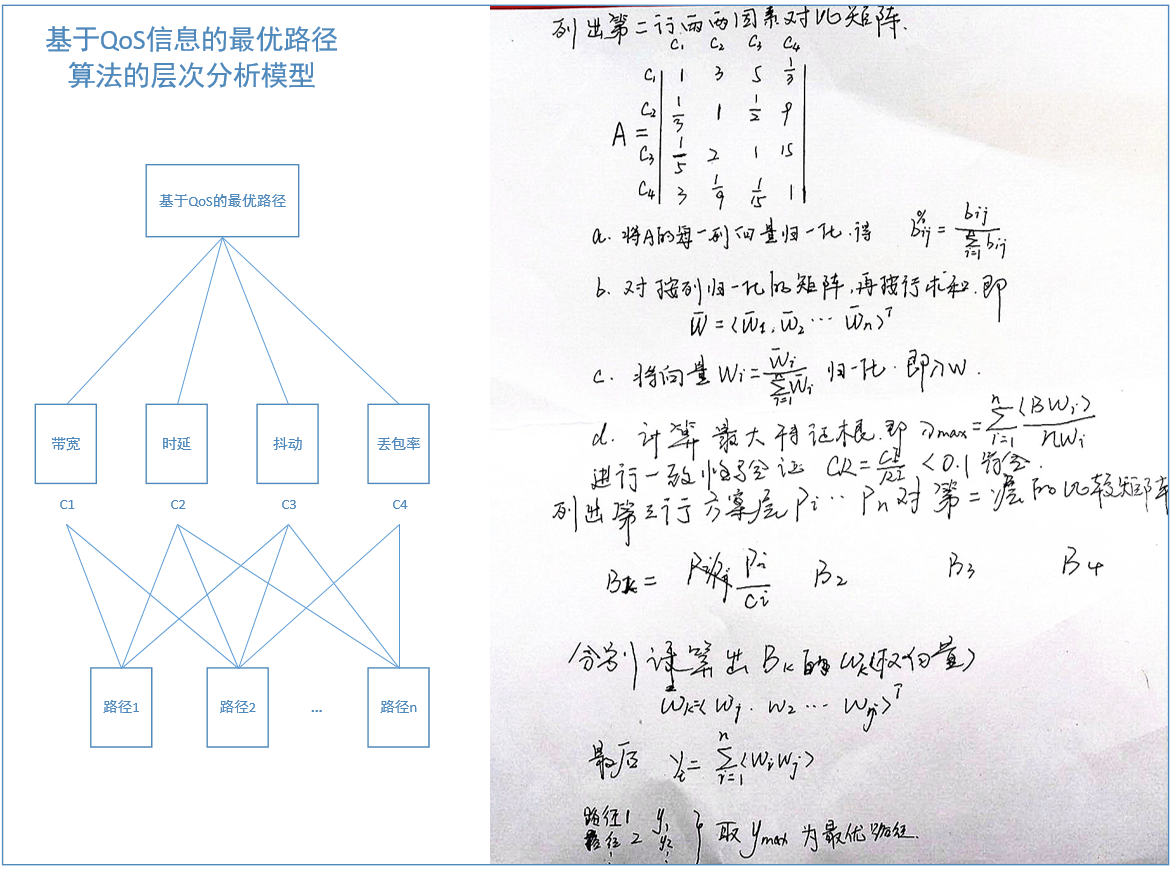 基于QoS信息的最优路径
算法的层次分析模型
基于QoS的最优路径
带宽 时延 抖动 丢包率
C1 C2 C3 C4
路径1 路径2 ... 路径n
列出第二行两两因素对比矩阵.
C₁ C₂ C₃ C₄
C₁ 1 3 5 1/3
C₂ 1/3 1 1/2 9
A =
C₃ 1/5 2 1 15
C₄ 3 1/9 1/15 1
a. 将A的每一列向量归一化.得 bij = bij / Σi=1 bij
b. 对按列归一化的矩阵,再按行求和.即
W̄ = (W̄1, W̄2 ⋯ W̄n)ᵀ
c. 将向量Wi = W̄i / Σi=1 W̄i 归一化.即 W.
d. 计算最大特征根.即 λmax = Σi=1 n (BWi) / nWi
进行一致性验证 CR = CI/RI < 0.1 符合.
列出第三行方案层Pi ⋯ Pn对第二层的比较矩阵
Bk = Pi/Ci B2 B3 B4
分别计算出Bk的Wk(权向量)
Wk=(W1. W2 ⋯ Wnj)ᵀ
最后 yi = Σi=1 n (WiWj)
路径1 y1
路径2 y2
} 取ymax为最优路径.